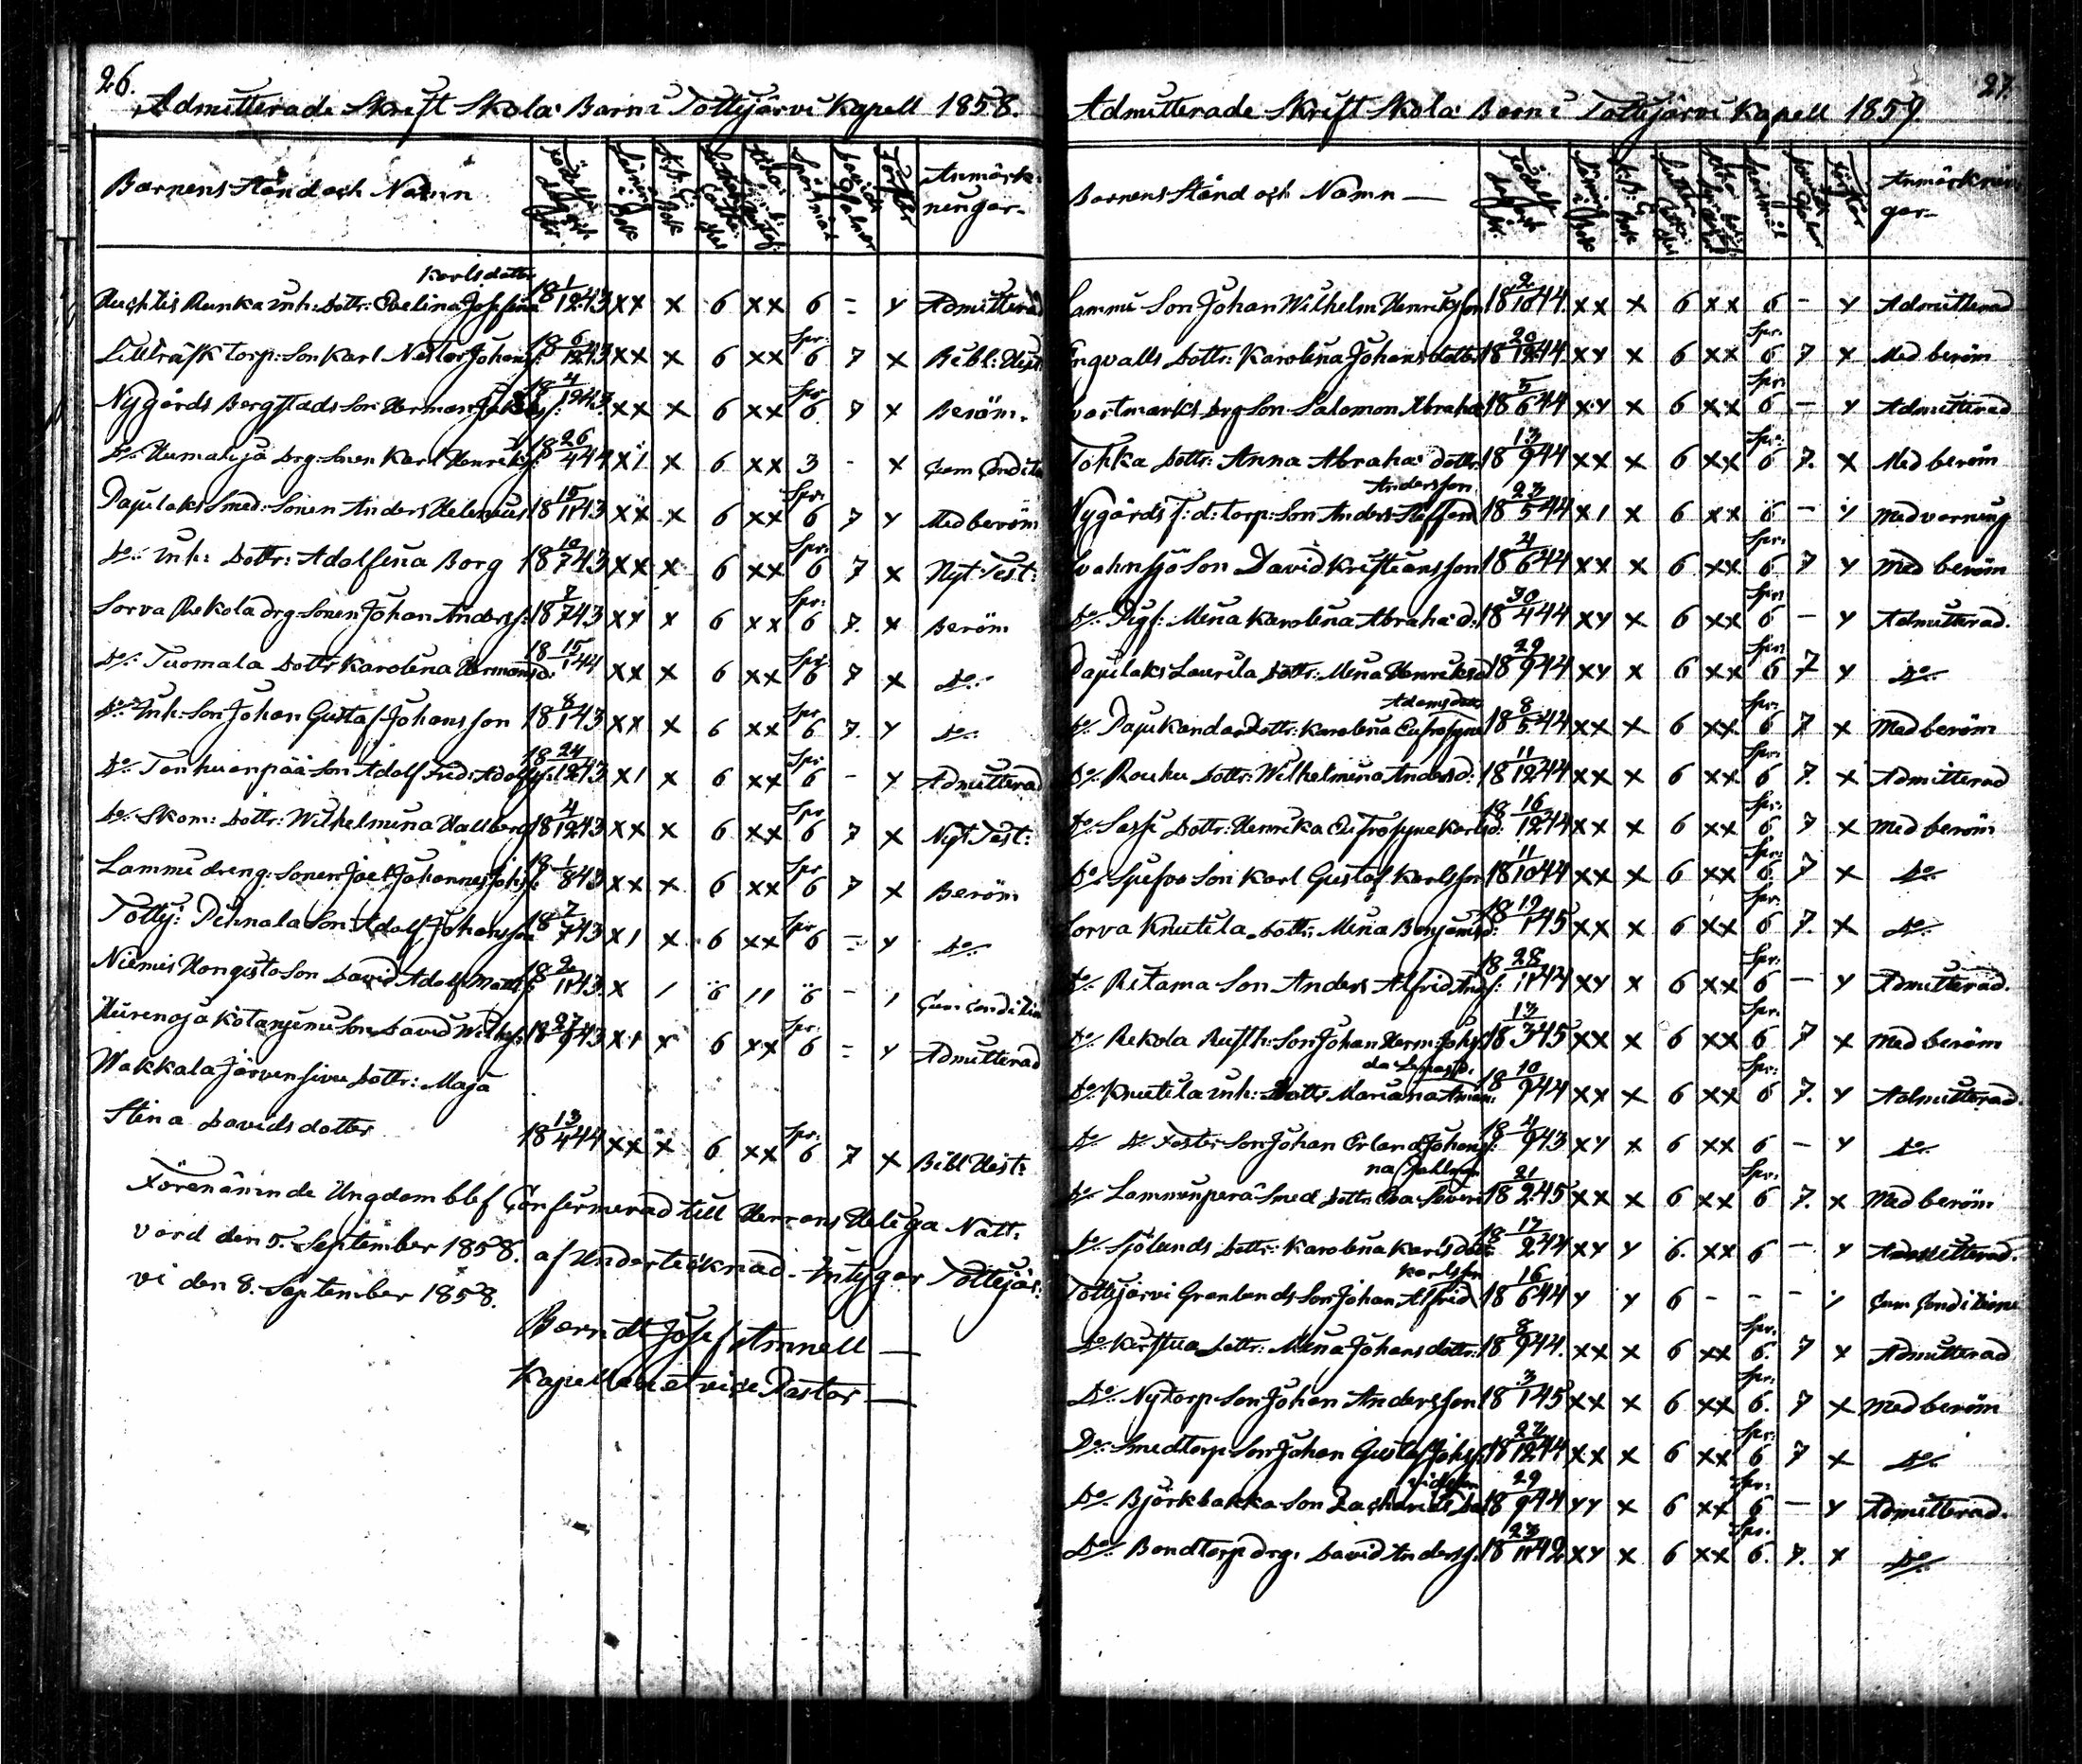 26.
Admitterade Skrift Skola Barn i Tottijärvi Kapell 1858.
Barnens Stånd och Namn
Födelse dag och år.
Anmärkningar.
Karlsdotter
Runka Inh: Dottr: Evelina Josefina 18 1/12 43 xx x 6 xx 6 - x Admitterad
Lillträsk torp: Son Karl Nestor Johans: 18 6/12 43 xx x 6 xx Spr: 6 7 x Bibl: Hist:
Nygårds Bergstads Son Herman 18 4/12 43 xx x 6 xx Spr 6 7 x Beröm.
Do Humaloja drg: Sonen Karl Henriks: 18 26/4 44 x1 x 6 xx 3 - x
Pajulaks Smed: Sonen Anders Helenius 18 15/11 43 xx x 6 xx Spr: 6 7 x Med beröm
Do Inh: Dottr: Adolfina Borg 18 10/7 43 xx x 6 xx Spr: 6 7 x Nyt Test:
Sorva Rekola drg: Sonen Johan Anderss: 18 7/7 43 xx x 6 xx Spr: 6 7. x Beröm
Do Tuomala Dottr Karolina Hermansd: 18 15/1 44 xx x 6 xx Spr: 6 7 x Do
Do Inh: Son Johan Gustaf Johansson 18 8/1 43 xx x 6 xx Spr 6 7. x Do
Do Tanhuanpää Son Adolf Fred: Adolfs: 18 24/12 43 x1 x 6 xx Spr 6 - x Admitterad
Do Skom: Dottr: Wilhelmina Hallberg 18 4/12 43 xx x 6 xx Spr 6 7 x Nyt Test:
Lammi dreng: Sonen Joel Johannes Johs: 18 1/8 43 xx x 6 xx Spr 6 7 x Beröm
Totty: Pihnala Son Adolf Johansson 18 7/7 43 x1 x 6 xx Spr 6 - x Do
Niemis Hongisto Son David Adolf Matts: 18 2/11 43 x 1 6 11 6 - 1
Kotaniemi Son David Wilh: 18 27/9 43 xx x 6 xx Spr: 6 - x Admitterad
Wakkala Järvensivu Dottr: Maja
Stina Davidsdotter 18 13/4 44 xx x 6 xx Spr: 6 7 x Bibl Hist:
Förenämnde Ungdom blef Confirmerad till Herrans Heliga Natt:
vard den 5. September 1858. af Undertecknad. Intygar Tottijär:
vi den 8. September 1858.
Berndt Josef Amnell
Kapellan et vice Pastor
27.
Admitterade Skrift Skola Barn i Tottijärvi Kapell 1859.
Barnens Stånd och Namn
Födelse dag och år.
Anmärkningar
Lammi Son Johan Wilhelm Henriksson 18 2/10 44. xx x 6 xx 6 - x Admitterad
Engvalls Dottr: Karolina Johansdotter 18 20/12 44. xx x 6 xx Spr: 6 7 x Med beröm
drg Son Salomon Abraha: 18 5/6 44 xx x 6 xx Spr: 6 - x Admitterad
Tohka Dottr: Anna Abraha: dottr 18 13/9 44 xx x 6 xx Spr: 6 7. x Med beröm
Andersson
Nygårds F: d: torp: Son Anders Steffan 18 23/5 44 x1 x 6 xx 6 - x Med varning
Svahnsjö Son David Kristiansson 18 4/6 44 xx x 6 xx Spr: 6 7 x Med beröm
Do Pig: Mina Karolina Abraha: d: 18 30/4 44 xx x 6 xx Spr: 6 - x Admitterad.
Pajulaks Laurila Dottr: Mina Henriksd 18 29/9 44 xx x 6 xx Spr: 6 7 x Do
Adamsdotter
Do Pajukanda Dottr: Karolina Eufrosyne 18 8/5 44 xx x 6 xx Spr: 6 7 x Med beröm
Do Rouku Dottr: Wilhelmina Andersd: 18 11/12 44 xx x 6 xx Spr: 6 7. x Admitterad
Do Sassi Dottr: Henrika Eufrosyne Karlsd: 18 16/12 44 xx x 6 xx Spr: 6 7 x Med beröm
Do Son Karl Gustaf Karlsson 18 11/10 44 xx x 6 xx Spr: 6 7 x Do
Sorva Knutila Dottr: Mina Benjamsd: 18 19/1 45 xx x 6 xx Spr: 6 7. x Do
Do Retama Son Anders Alfrid Ands: 18 28/11 44 xx x 6 xx Spr: 6 - x Admitterad.
Do Rekola Rusth: Son Johan Herm: Johs: 18 13/3 45 xx x 6 xx Spr: 6 7 x Med beröm
Do Knutila Inh: Dottr Mariana 18 10/9 44 xx x 6 xx Spr: 6 7. x Admitterad.
Do Do Foster Son Johan Erland Johans: 18 4/9 43 xx x 6 xx 6 - x Do
Do Lammenperä Smed Dottr: 18 21/2 45 xx x 6 xx Spr: 6 7. x Med beröm
Do Sjölunds Dottr: Karolina Karlsdotr: 18 17/2 44 xx x 6. xx 6 - x Admitterad.
Karlsson
Tottijärvi Grönlunds Son Johan Alfrid 18 16/6 44 x x 6 - - - x
Do Dottr: Mina Johansdottr: 18 8/9 44. xx x 6 xx Spr: 6. 7 x Admitterad
Do Nytorp Son Johan Andersson 18 3/1 45 xx x 6 xx Spr: 6. 7 x Med beröm
Do Smedtorp Son Johan Gustaf Johs: 18 27/12 44 xx x 6 xx Spr: 6 7 x Do
vidsson
Do Björkbakka Son Zacharias Da 18 29/9 44 xx x 6 xx Spr: 6 - x Admitterad.
Do Bondtorp drg: David Anderss: 18 23/11 42 xx x 6 xx Spr: 6. 7. x Do